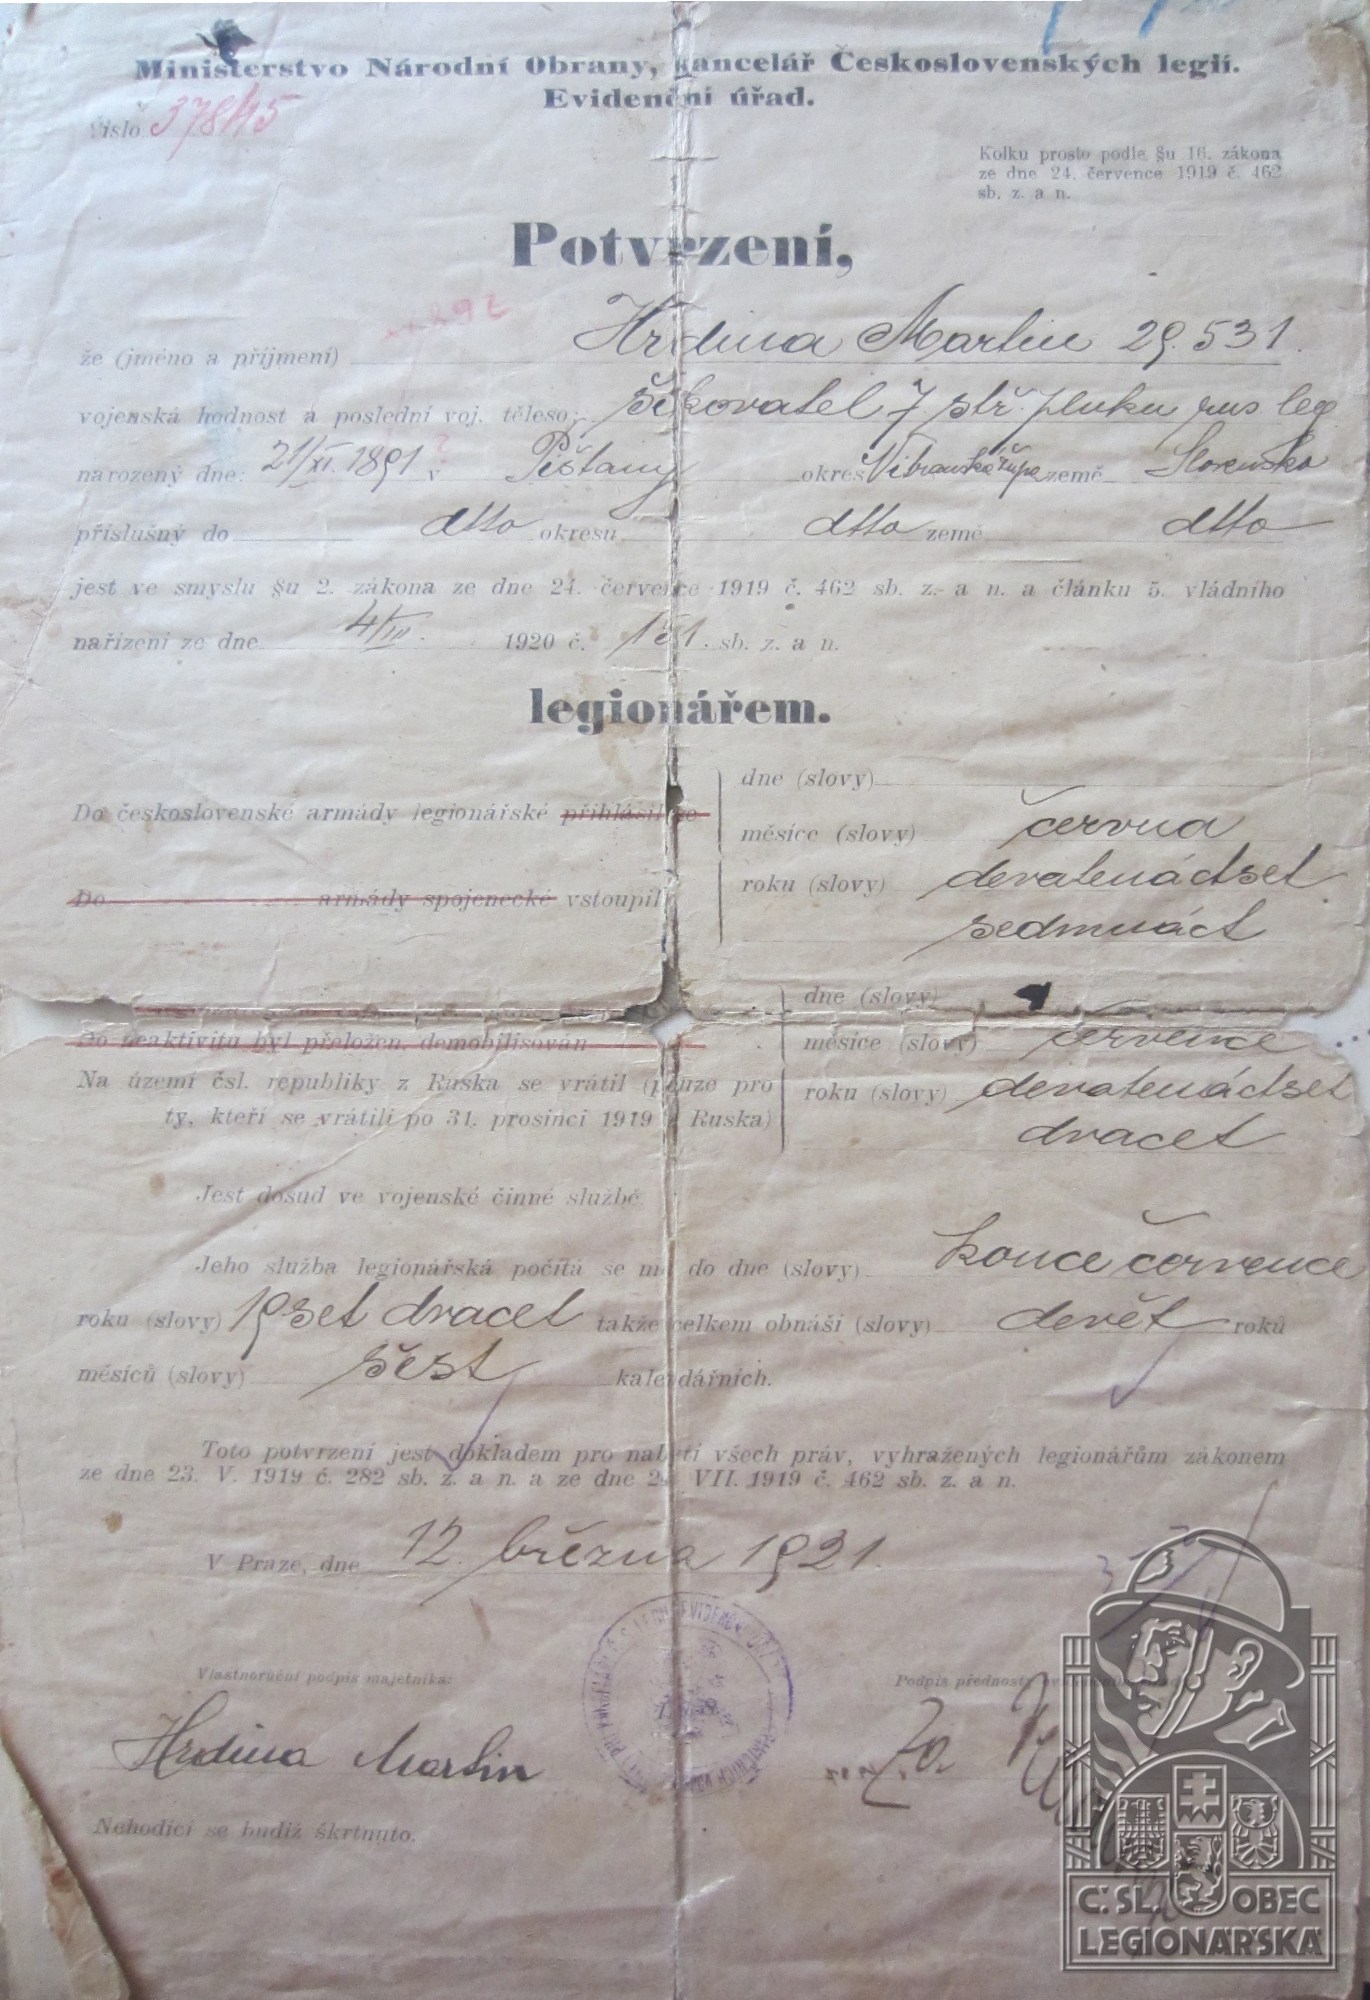 Ministerstvo Národní Obrany, kancelář Československých legií.
Evidenční úřad.
Číslo 37845
Kolku prosto podle §u 16. zákona
ze dne 24. července 1919 č. 462
sb. z. a n.
Potvrzení,
že (jméno a příjmení) Hrdina Martin 29.531.
vojenská hodnost a poslední voj. těleso: šikovatel 7. stř. pluku rus leg
narozený dne: 21/XI. 1891 v Píšťany okres Nitranská župa země Slovensko
příslušný do dtto okresu dtto země dtto
jest ve smyslu §u 2. zákona ze dne 24. července 1919 č. 462 sb. z. a n. a článku 5. vládního
nařízení ze dne 4/III. 1920 č. 151. sb. z. a n.
legionářem.
dne (slovy)
Do československé armády legionářské přihlásil se
měsíce (slovy) června
roku (slovy) devatenáctset
Do armády spojenecké vstoupil
sedmnáct
dne (slovy)
Do neaktivity byl přeložen, demobilisován
měsíce (slovy) července
Na území čsl. republiky z Ruska se vrátil (pouze pro
roku (slovy) devatenáctset
ty, kteří se vrátili po 31. prosinci 1919 z Ruska)
dvacet
Jest dosud ve vojenské činné službě
Jeho služba legionářská počítá se mu do dne (slovy) konce července
roku (slovy) 19set dvacet takže celkem obnáší (slovy) devět roků
měsíců (slovy) šest kalendářních.
Toto potvrzení jest dokladem pro nabytí všech práv, vyhražených legionářům zákonem
ze dne 23. V. 1919 č. 282 sb. z. a n. a ze dne 24. VII. 1919 č. 462 sb. z. a n.
V Praze, dne 12. března 1921.
Vlastnoruční podpis majetníka:
Podpis přednosty
Hrdina Martin
Za
Nehodící se budiž škrtnuto.
Č. SL. OBEC
LEGIONÁŘSKÁ